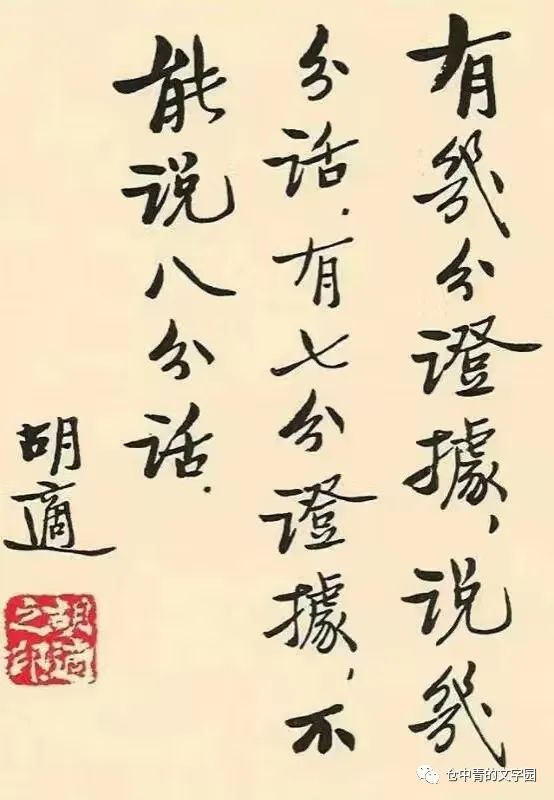 有幾分證據,说幾
分话.有七分證據,不
能说八分话.
胡適
胡適之印
仓中青的文字园